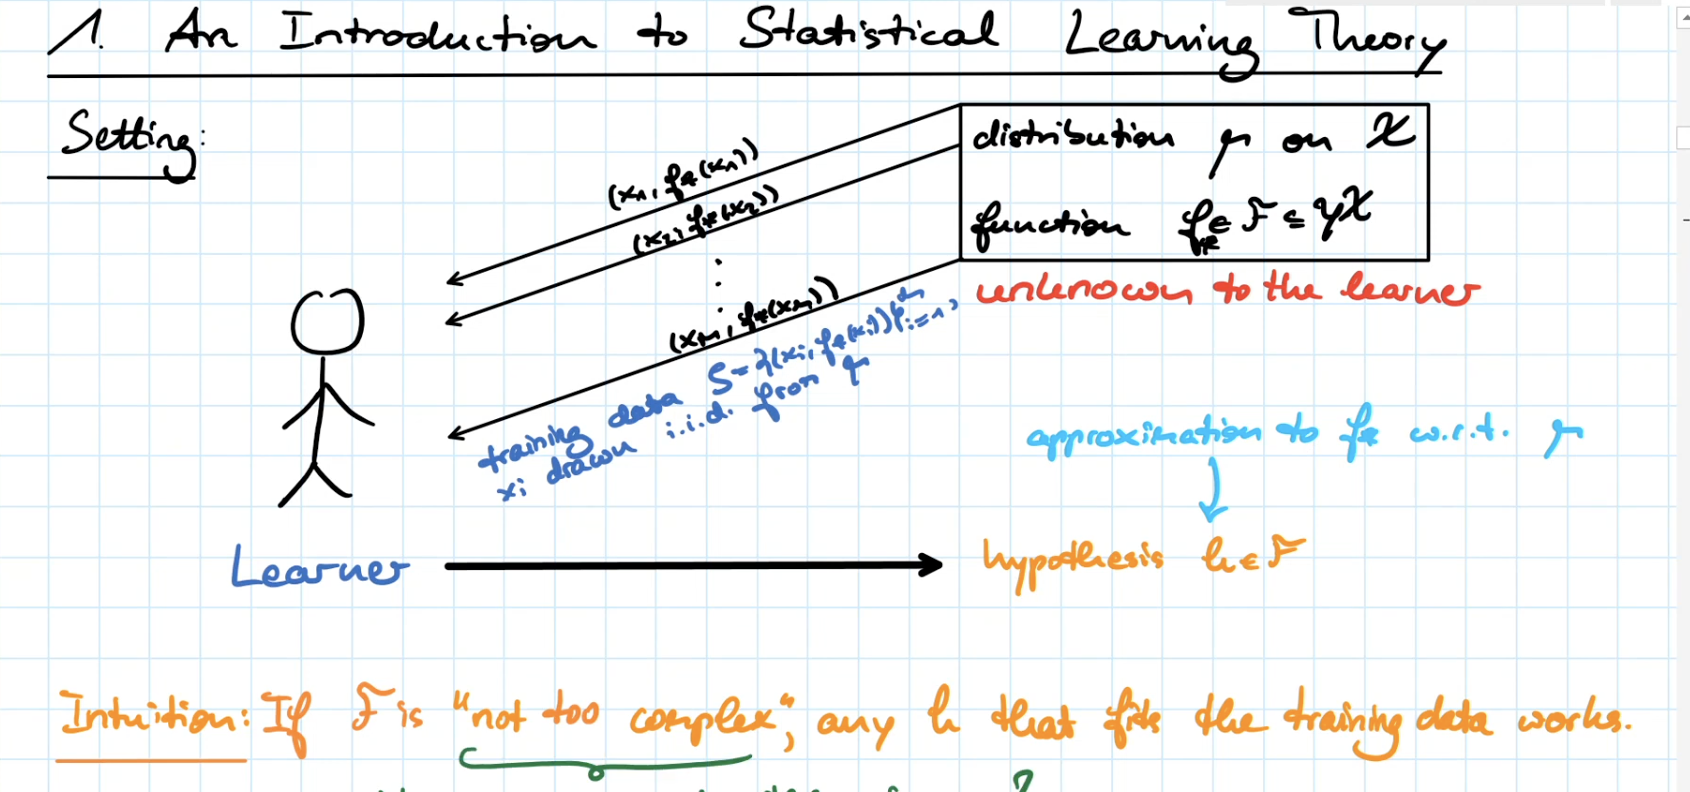 1. An Introduction to Statistical Learning Theory
Setting:
distribution μ on 𝒳
function f_* ∈ ℱ ⊆ 𝒴^𝒳
unknown to the learner
(x₁, f_*(x₁))
(x₂, f_*(x₂))
⋮
(xₘ, f_*(xₘ))
training data S = {(xᵢ, f_*(xᵢ))}ᵢ₌₁ᵐ,
xᵢ drawn i.i.d. from μ
approximation to f_* w.r.t. μ
Learner
hypothesis h ∈ ℱ
Intuition: If ℱ is "not too complex", any h that fits the training data works.